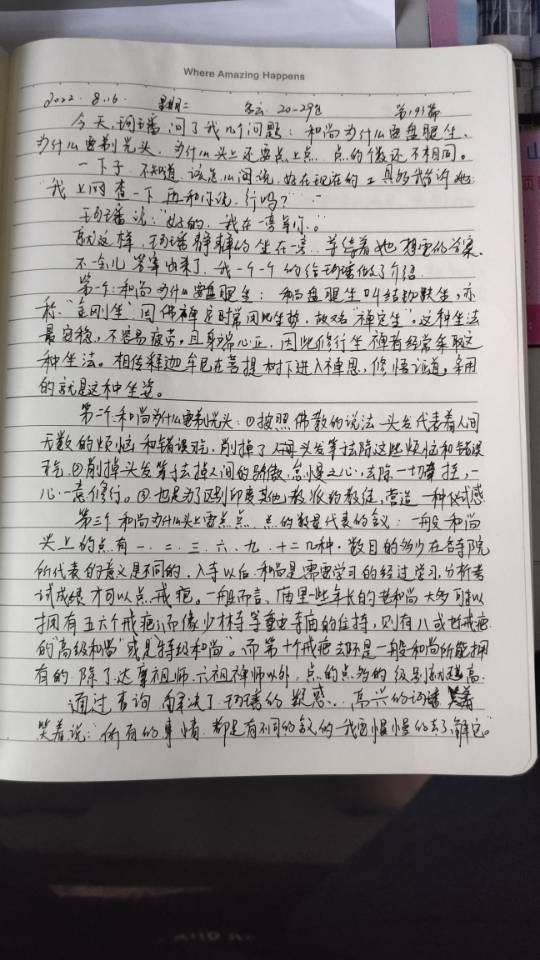 Where Amazing Happens
2022.8.16. 星期二 多云 20-29℃ 第193篇
今天 问了我几个问题：和尚为什么要盘腿坐，
为什么要剃光头，为什么头上还要点上点，点的个数还不相同。
一下子，不知道该怎么回说，好在现在的工具 我告诉她
"我上网查一下再和你说，行吗？"
说："好的，我在一旁等你。"
就这样， 静静的坐在一旁，等待着她想要的答案。
不一会儿答案出来了，我一个一个的给 做了介绍
第一个：和尚为什么要盘腿坐：和尚盘腿坐叫 坐，亦
称"金刚坐"因佛禅定时常用此坐势，故又名"禅定坐"。这种坐法
最安稳，不容易疲劳。且身端心正，因此修行坐禅者经常采取这
种坐法。相传释迦牟尼在菩提树下进入禅思，修悟证道，采用
的就是这种坐姿。
第二个：和尚为什么要剃光头：①按照佛教的说法 头发代表着人间
无数的烦恼和错误习气，削掉了 头发等于去除这些烦恼和错误
习气，②削掉头发等于去掉人间的骄傲、怠慢之心，去除一切牵挂，一
心一意修行。③也是为了区别印度其他教派的教徒，营造一种仪式感
第三个和尚为什么头上要点点，点的数量代表的含义：一般和尚
头上的点有一、二、三、六、九、十二几种，数目的多少在各寺院
所代表的意义是不同的，入寺以后 和尚是需要学习的经过学习，分析考
试成绩才可以点戒疤。一般而言，庙里一些年长的老和尚大多可以
拥有五六个戒疤，而像少林寺等重要寺庙的住持，则有八或九戒疤
的"高级和尚"或是"特级和尚"。而第十个戒疤 不是一般和尚所能拥
有的 除了达摩祖师、六祖禅师以外，点的点多的级别就越高
通过查询 解决了 的疑惑，高兴的
笑着说："所有的事情，都是有不同的含义的 我要慢慢的去了解它。"